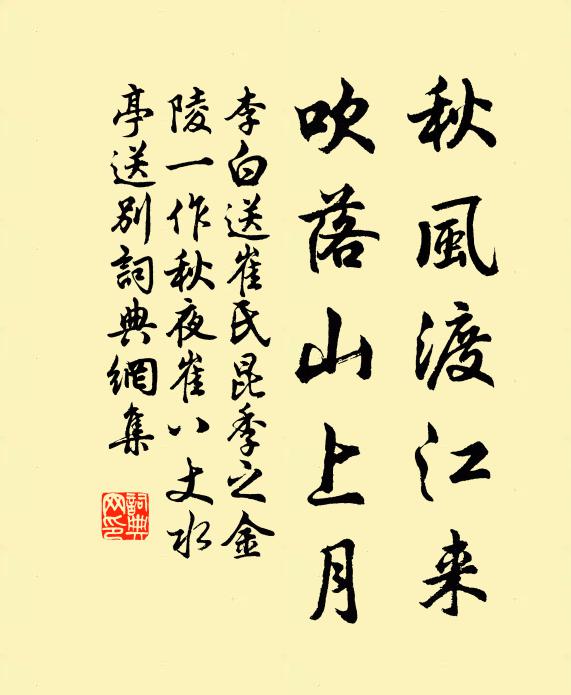 秋風渡江来
吹落山上月
李白送崔氏昆季之金
陵一作秋夜崔八丈水
亭送别詞典網集
詞典网印